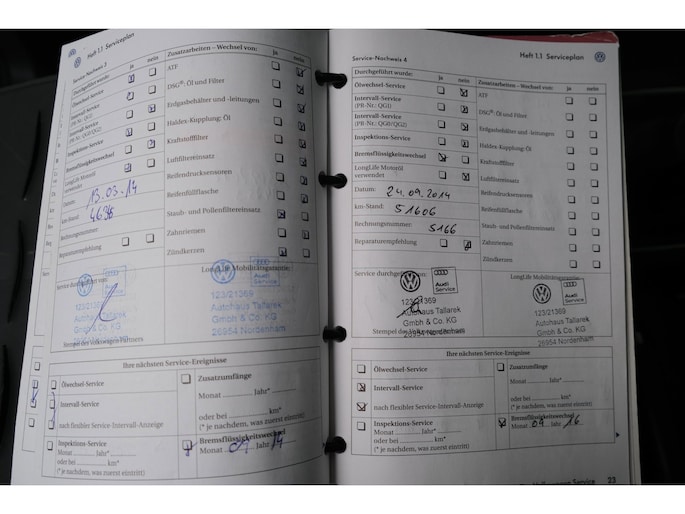 Heft 1.1 Serviceplan
Service-Nachweis 3
Durchgeführt wurde: ja nein
Ölwechsel-Service
Intervall-Service
(PR-Nr.: QG1)
Intervall-Service
(PR-Nr.: QG0/QG2)
Inspektions-Service
Bremsflüssigkeitswechsel
LongLife Motoröl
verwendet
Datum: 13.03.14
km-Stand:
Rechnungsnummer:
Reparaturempfehlung
Zusatzarbeiten – Wechsel von: Ja nein
ATF
DSG®: Öl und Filter
Erdgasbehälter und -leitungen
Haldex-Kupplung: Öl
Kraftstofffilter
Luftfiltereinsatz
Reifendrucksensoren
Reifenfüllflasche
Staub- und Pollenfiltereinsatz
Zahnriemen
Zündkerzen
Service durchgeführt von:
Stempel des Volkswagen Partners
LongLife Mobilitätsgarantie:
Audi
Service
123/21369
Autohaus Tallarek
Gmbh & Co. KG
26954 Nordenham
Ihre nächsten Service-Ereignisse
Ölwechsel-Service
Intervall-Service
nach flexibler Service-Intervall-Anzeige
Inspektions-Service
Monat Jahr*
oder bei km*
(* je nachdem, was zuerst eintritt)
Zusatzumfänge
Monat Jahr*
oder bei km*
(* je nachdem, was zuerst eintritt)
Bremsflüssigkeitswechsel
Monat 04 Jahr 14
Service-Nachweis 4
Heft 1.1 Serviceplan
Durchgeführt wurde: ja nein
Ölwechsel-Service
Intervall-Service
(PR-Nr.: QG1)
Intervall-Service
(PR-Nr.: QG0/QG2)
Inspektions-Service
Bremsflüssigkeitswechsel
LongLife Motoröl
verwendet
Datum: 24.09.2014
km-Stand: 51606
Rechnungsnummer: 5166
Reparaturempfehlung
Zusatzarbeiten – Wechsel von: Ja nein
ATF
DSG®: Öl und Filter
Erdgasbehälter und -leitungen
Haldex-Kupplung: Öl
Kraftstofffilter
Luftfiltereinsatz
Reifendrucksensoren
Reifenfüllflasche
Staub- und Pollenfiltereinsatz
Zahnriemen
Zündkerzen
Service durchgeführt von:
Audi
Service
123/21369
Autohaus Tallarek
Gmbh & Co. KG
26954 Nordenham
Stempel des Volkswagen Partners
LongLife Mobilitätsgarantie:
Audi
Service
123/21369
Autohaus Tallarek
Gmbh & Co. KG
26954 Nordenham
Ihre nächsten Service-Ereignisse
Ölwechsel-Service
Intervall-Service
nach flexibler Service-Intervall-Anzeige
Inspektions-Service
Monat Jahr*
oder bei km*
(* je nachdem, was zuerst eintritt)
Zusatzumfänge
Monat Jahr*
oder bei km*
(* je nachdem, was zuerst eintritt)
Bremsflüssigkeitswechsel
Monat 09 Jahr 16
23